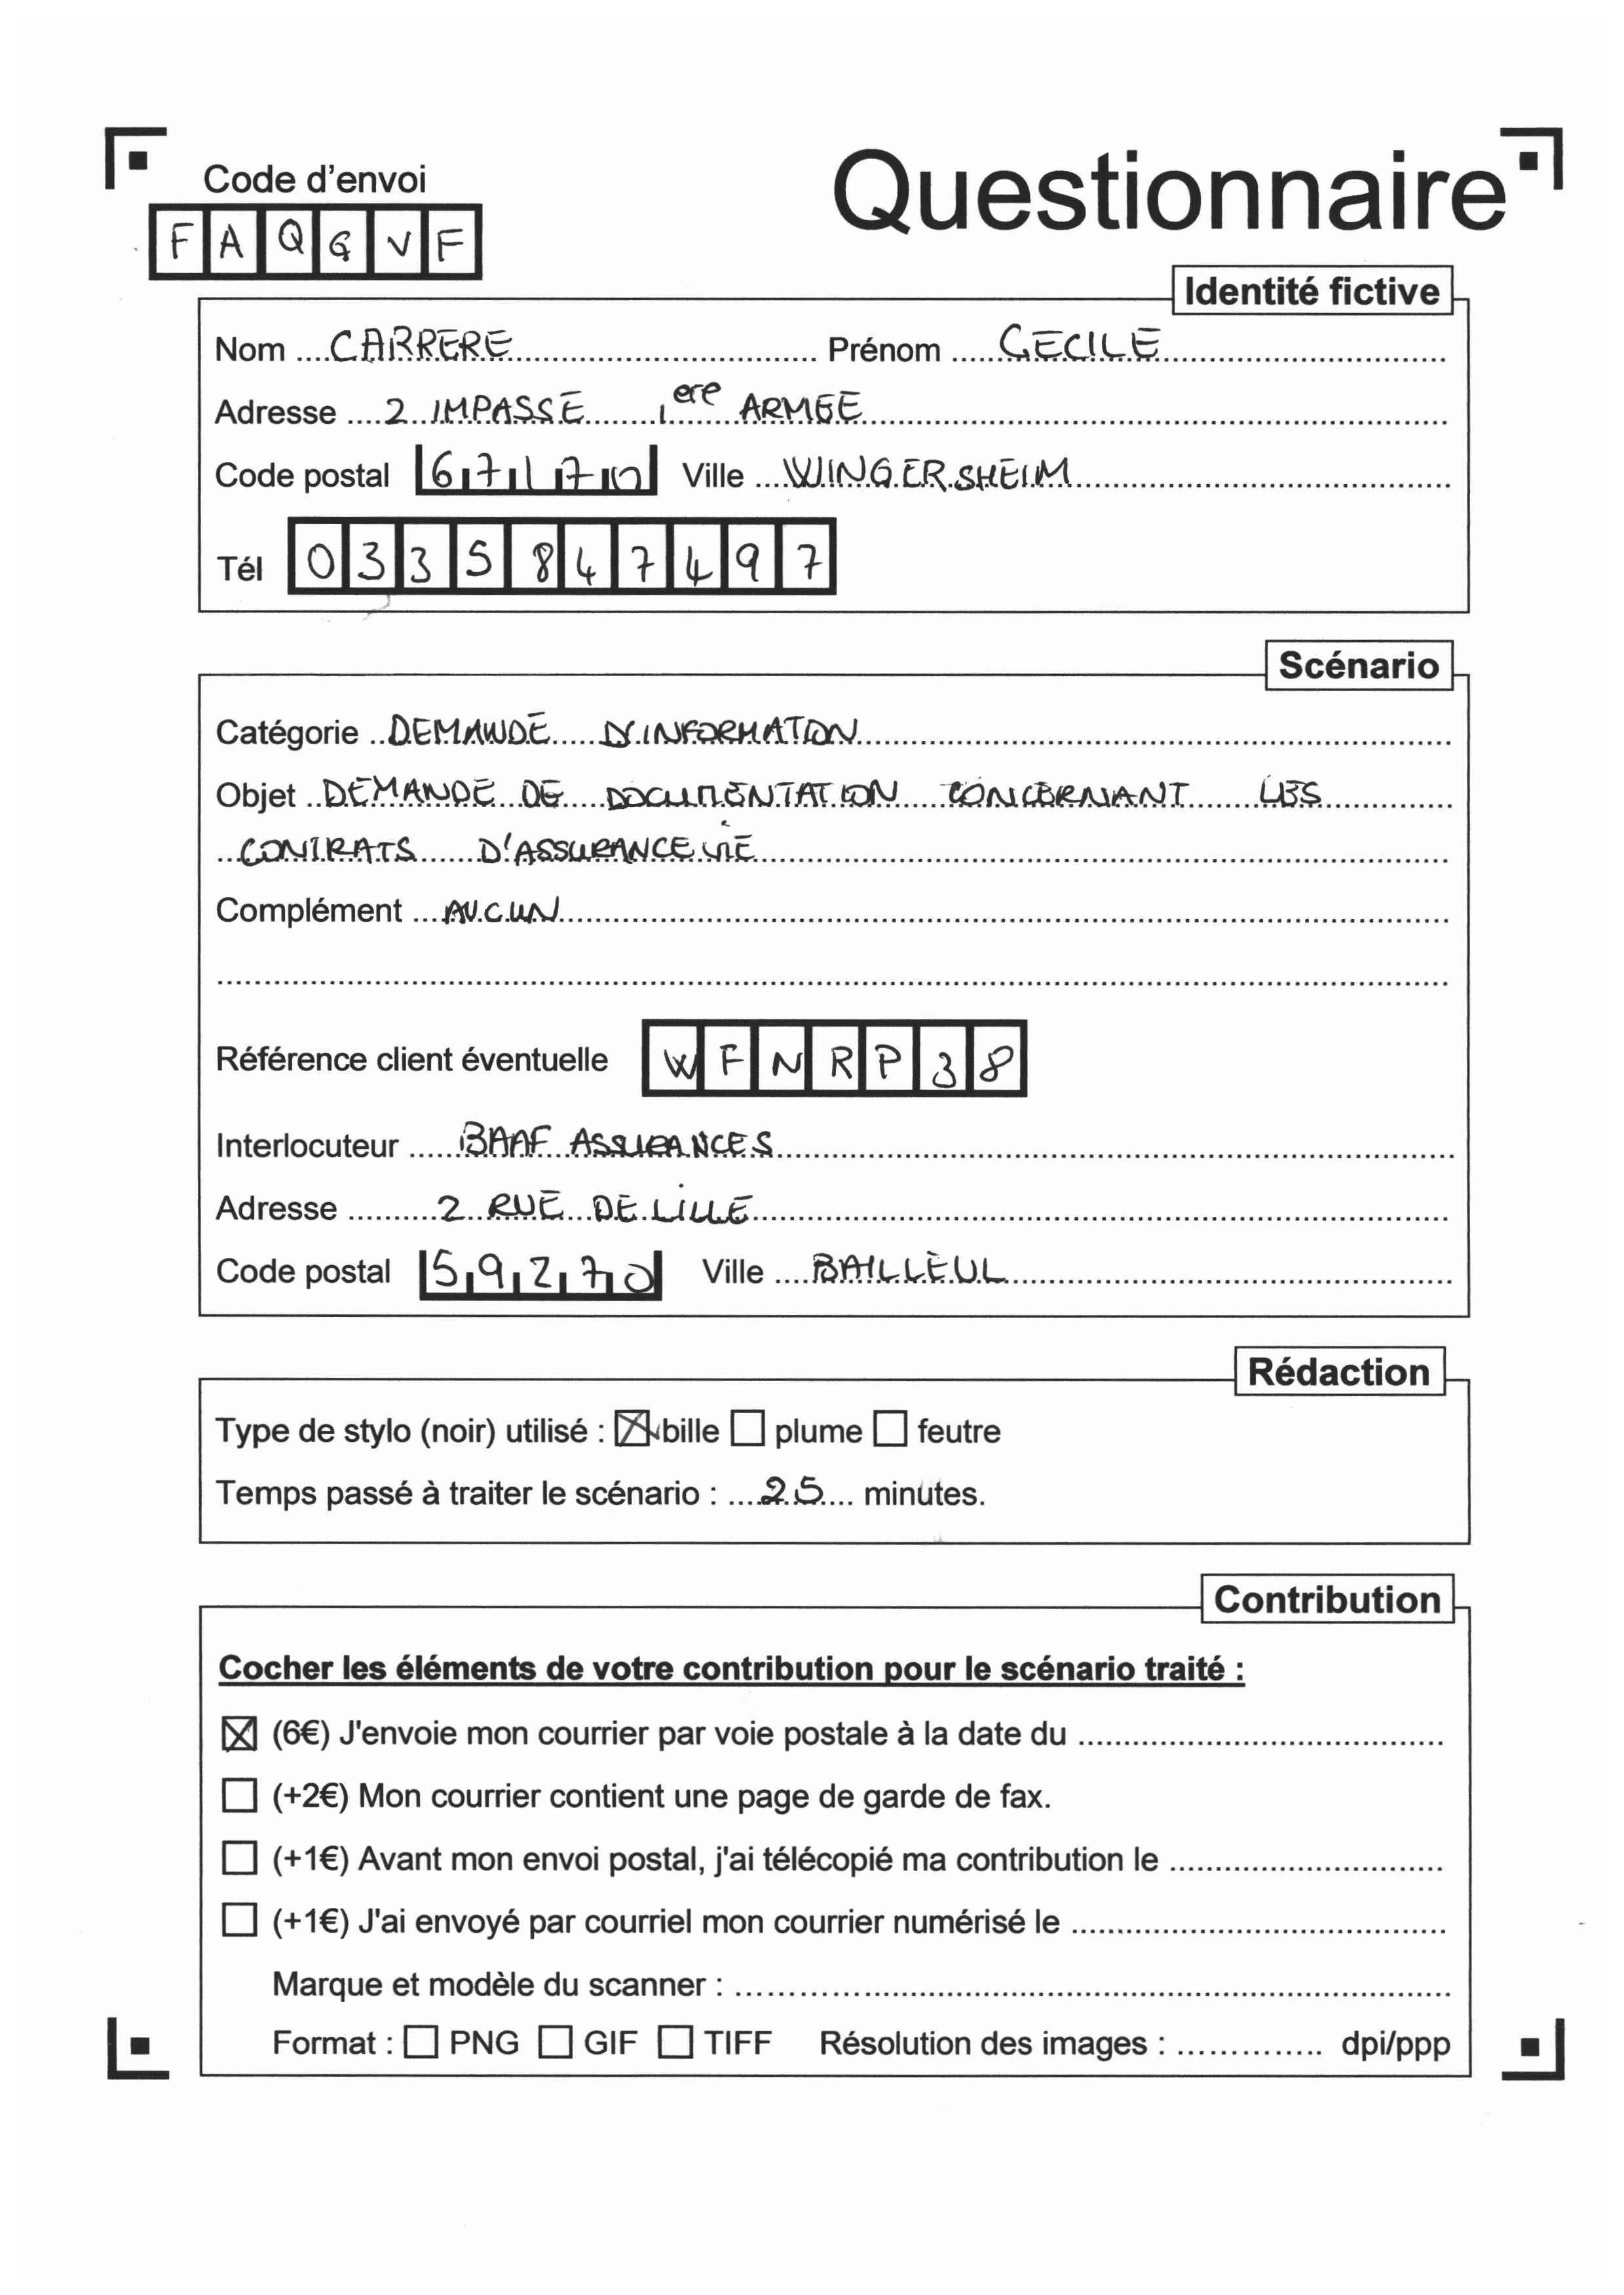 Questionnaire
Code d'envoi
FAQGVF
Identité fictive
Nom ....CARRERE.... Prénom ....CECILE....
Adresse ....2 IMPASSE 1ere ARMEE....
Code postal 67170 Ville ....WINGERSHEIM....
Tél 0335847497
Scénario
Catégorie ..DEMANDE D'INFORMATION....
Objet ..DEMANDE DE DOCUMENTATION CONCERNANT LES
..CONTRATS D'ASSURANCE VIE....
Complément ....AUCUN....
Référence client éventuelle WFNRP38
Interlocuteur ....BAAF ASSURANCES....
Adresse ....2 RUE DE LILLE....
Code postal 59270 Ville ....BAILLEUL....
Rédaction
Type de stylo (noir) utilisé : ☒ bille ☐ plume ☐ feutre
Temps passé à traiter le scénario : ....25.... minutes.
Contribution
Cocher les éléments de votre contribution pour le scénario traité :
☒ (6€) J'envoie mon courrier par voie postale à la date du ....
☐ (+2€) Mon courrier contient une page de garde de fax.
☐ (+1€) Avant mon envoi postal, j'ai télécopié ma contribution le ....
☐ (+1€) J'ai envoyé par courriel mon courrier numérisé le ....
Marque et modèle du scanner : ....
Format : ☐ PNG ☐ GIF ☐ TIFF Résolution des images : .... dpi/ppp